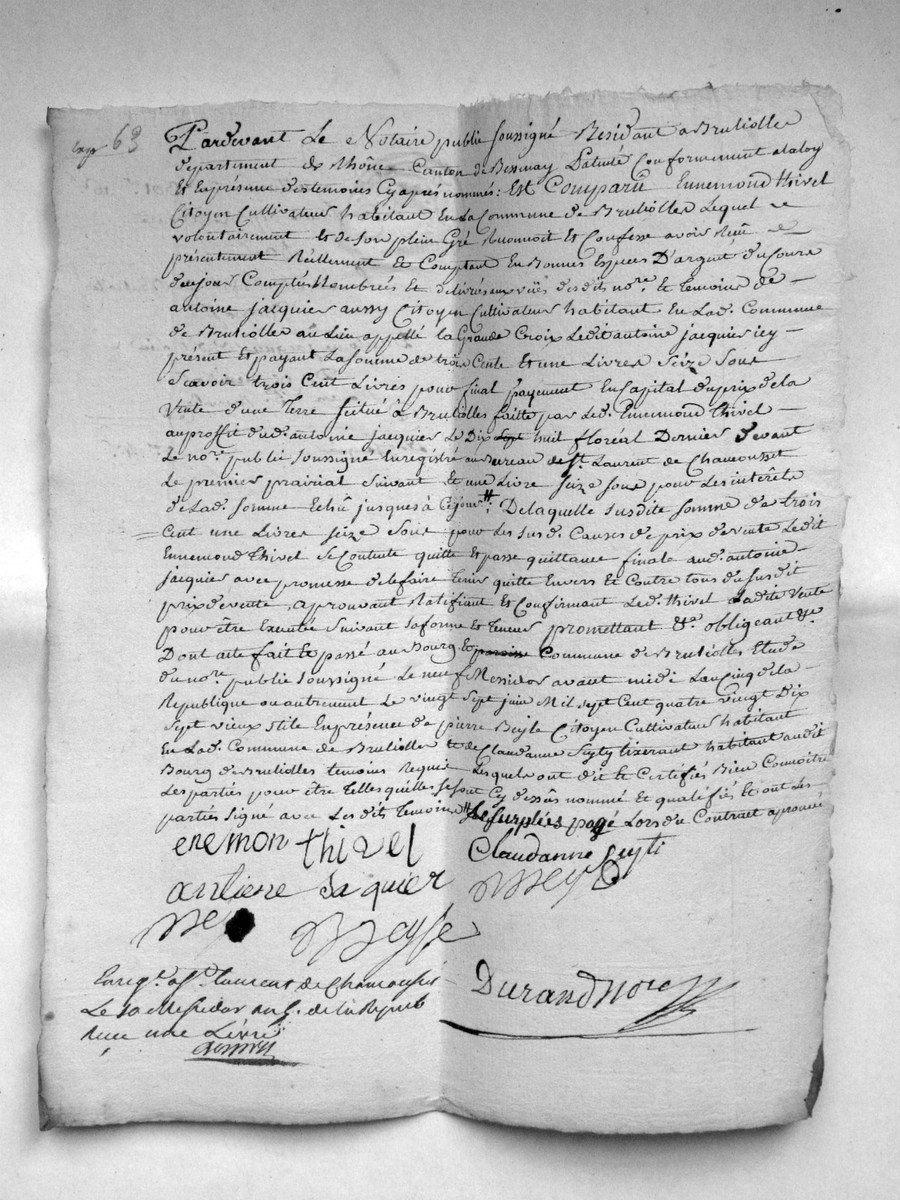 63
Pardevant Le Notaire public soussigné Residant a Brulioller
departement de Rhône Canton de Bessenay Patenté Conformement alaloy
Et En présence des temoins Cy aprés nommés : Est Comparu Ennemond thivel
Citoyen Cultivateur habitant En La Commune de Brulioller Lequel
volontairement et de son plein Gré Reconnoit Et Confesse avoir Reçu
présentement Réellement Et Comptant En Bonnes Especes D'argent du Cours
de ce jour Comptés Nombrées et délivrés aux vües desdits nore. & temoins de
antoine jacquier aussy Citoyen Cultivateur habitant En Lad. Commune
de Brulioller au Lieu appellé la Grande Croix Ledit antoine jacquier icy
présent Et payant La somme de trois Cents Et une Livres Seize Sous
Scavoir trois Cent Livres pour final payement En Capital du prix de la
Vente d'une Terre Scitué à Brulioller faitte par Led. Ennemond thivel
au proffit dud. antoine jacquier Le Dix huit floréal Dernier Devant
Le nore. public soussigné Enregistré au Bureau de St. Laurent de Chamousset
Le premier prairial Suivant Et une Livre Seize sous pour Les intérêts
de Lad. somme Echû jusques à Cejour ; De laquelle susdite somme de trois
Cent une Livres Seize Sous pour Les susd. Causes de prix de vente Ledit
Ennemond thivel Se Contente quitte Et passe quittance finale aud. antoine
jacquier avec promesse de le faire Tenir quitte Envers Et Contre tous du susdit
prix de vente, aprouvant Ratifiant Et Confirmant Led. thivel Ladite vente
pour être Executée Suivant sa forme Et Teneur promettant &a. obligeant &a.
Dont acte fait Et passé au Bourg Et paroisse Commune de Brulioller Etude
du nore. public soussigné Le neuf Messidor avant midi L'an Cinq de la
Republique ou autrement Le vingt Sept juin Mil sept Cent quatre vingt Dix
Sept vieux stile En présence de pierre Beyle Citoyen Cultivateur habitant
En Lad. Commune de Brulioller & de Claudanne Seyty tixerant habitant audit
Bourg de Brulioller temoins Requis Lesquels ont dit & Certifiés Bien Connoitre
Les parties pour être Telles quelles se sont Cy dessûs nommé Et qualifiés Et ont Les
parties Signé avec Les dits Temoins Lors du Contract aprouvé
enemon thivel Claudanne Seyti
antiene Jaquier
Durand nore
Enregt. a St. Laurent de Chamousset
Le 10 Messidor an 5. de la Repub
Recu une Livre